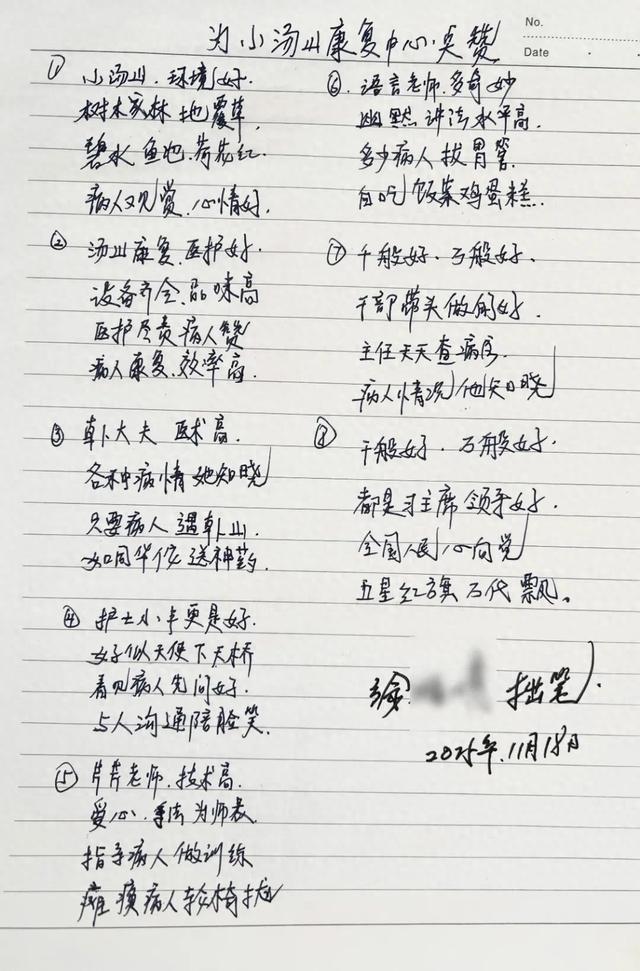 No.
Date
为小汤山康复中心点赞
① 小汤山.环境好.
树木家林 地覆草,
碧水 鱼池.荷花红.
病人又见赏.心情好.
② 汤山康复.医护好.
设备齐全.品味高
医护尽责 病人赞
病人康复.效率高.
③ 大夫 医术高.
各种病情她知晓
只要病人 遇
如同华佗 送神药.
④ 护士小 更是好.
好似天使下天桥
看见病人先问好.
与人沟通陪脸笑.
⑤ 老师.技术高.
爱心.手法 为师表.
指导病人做训练
瘫痪病人轮椅
⑥ 语言老师.多奇妙
幽默 讲法水平高.
多少病人 拔胃管.
自吃饭菜鸡蛋糕.
⑦ 千般好.万般好.
干部带头做的好.
主任天天查病房.
病人情况他知晓
⑧ 千般好.万般好.
都是习主席 领导好.
全国人民心向党
五星红旗万代飘。
拙笔.
2025年.11月18日